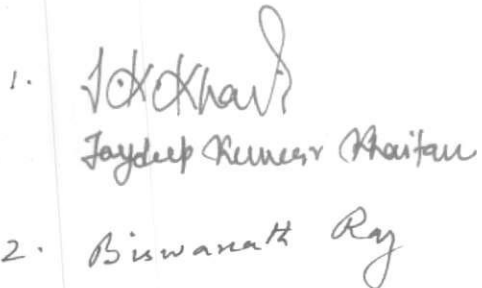 1. J K Khai
Jaydeep Kumar Khaitan
2. Biswanath Ray